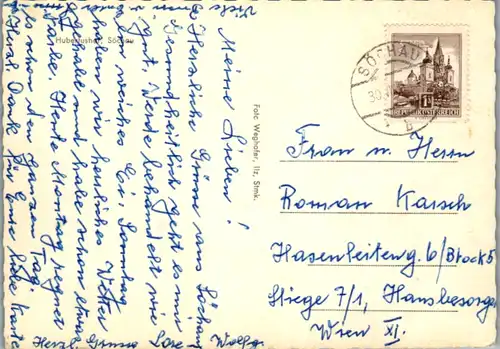 Hubertushof, Söchau
Meine Lieben!
Herzliche Grüße aus Söchau
Grundheitlich geht es mir
gut. Werde behandelt wie
ein weiches Ei. Sonntag
haben wir herrliches Wetter
gehabt und habe schon etwas
Farbe. Heute Montag regnet
es schon den ganzen Tag.
Vielen Dank für Eure liebe Karte
Herzl. Grüsse
Foto: Weghofer, Ilz, Stmk.
SÖCHAU
REPUBLIK ÖSTERREICH
Frau u. Herrn
Roman Karsch
Hasenleiteng. 6/Block 5
Stiege 7/1, Hausbesorger
Wien XI.